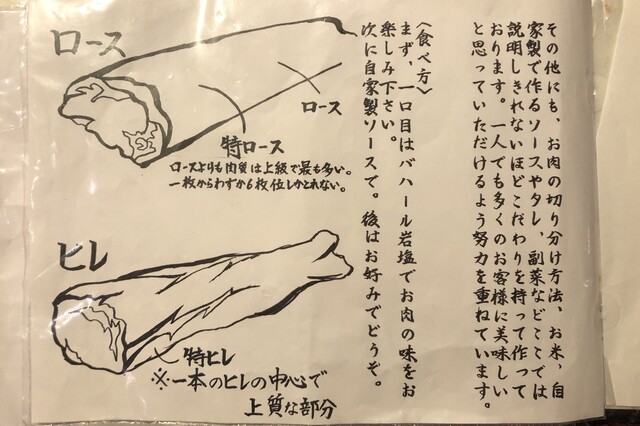 その他にも、お肉の切り分け方法、お米、自
家製で作るソースやタレ、副菜などここでは
説明しきれないほどこだわりを持って作って
おります。一人でも多くのお客様に美味しい
と思っていただけるよう努力を重ねています。
〈食べ方〉
まず、一口目はバハール岩塩でお肉の味をお
楽しみ下さい。
次に自家製ソースで。後はお好みでどうぞ。
ロース
ロース
特ロース
ロースよりも肉質は上級で最も多い。
一枚からわずか6枚位しかとれない。
ヒレ
特ヒレ
※一本のヒレの中心で
上質な部分